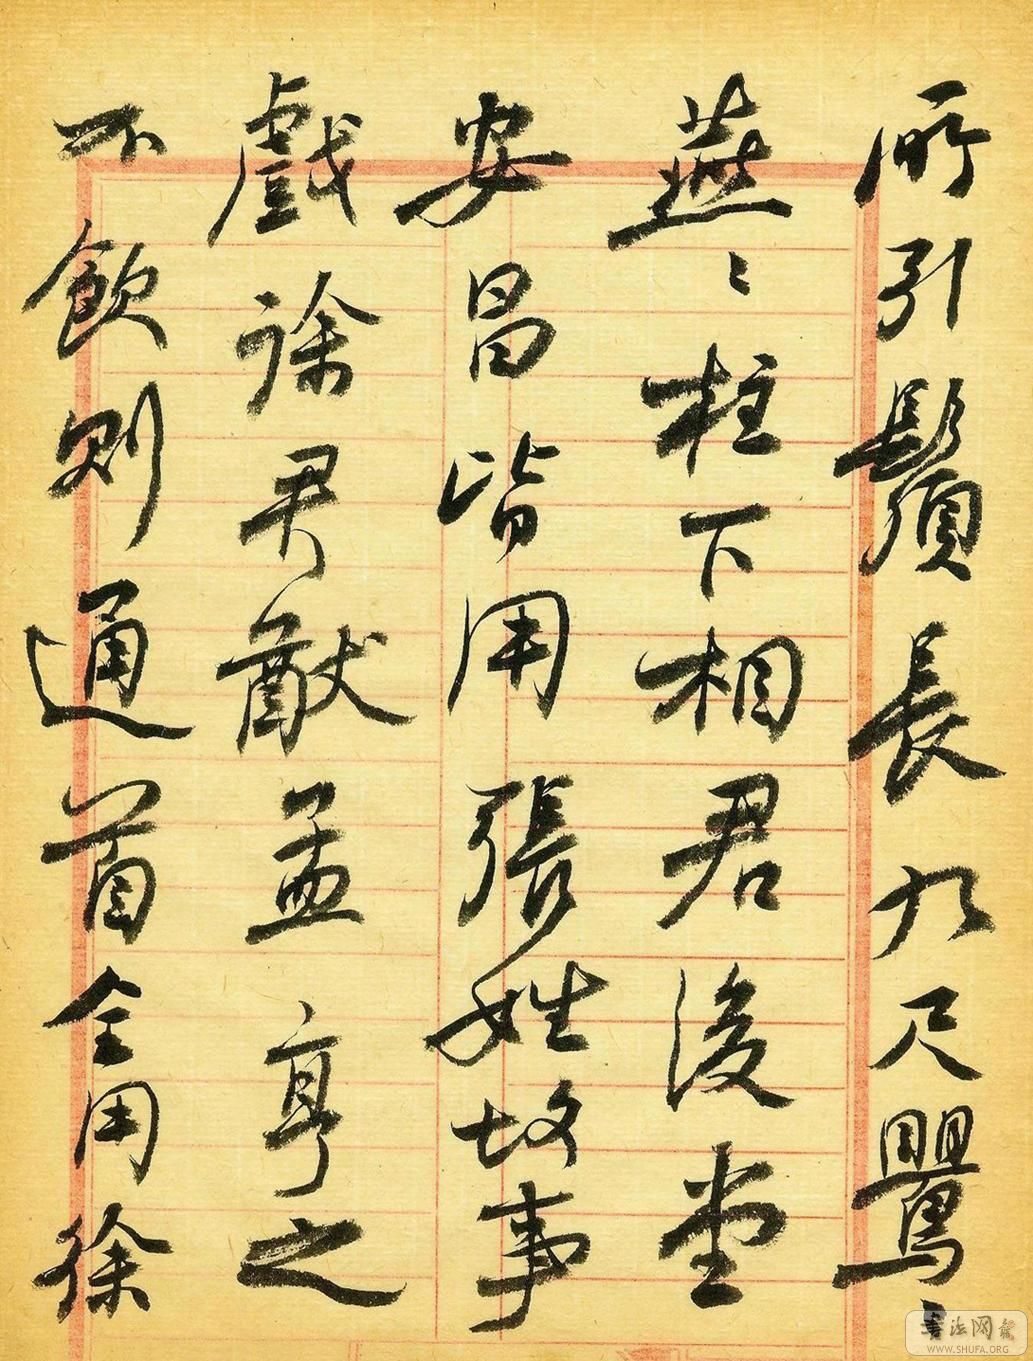 所引鬚長九尺鸎〻
燕〻柱下相君後堂
安昌皆用張姓故事
戲徐君猷孟亨之
不飲則通首全用徐
書法网
WWW.SHUFA.ORG